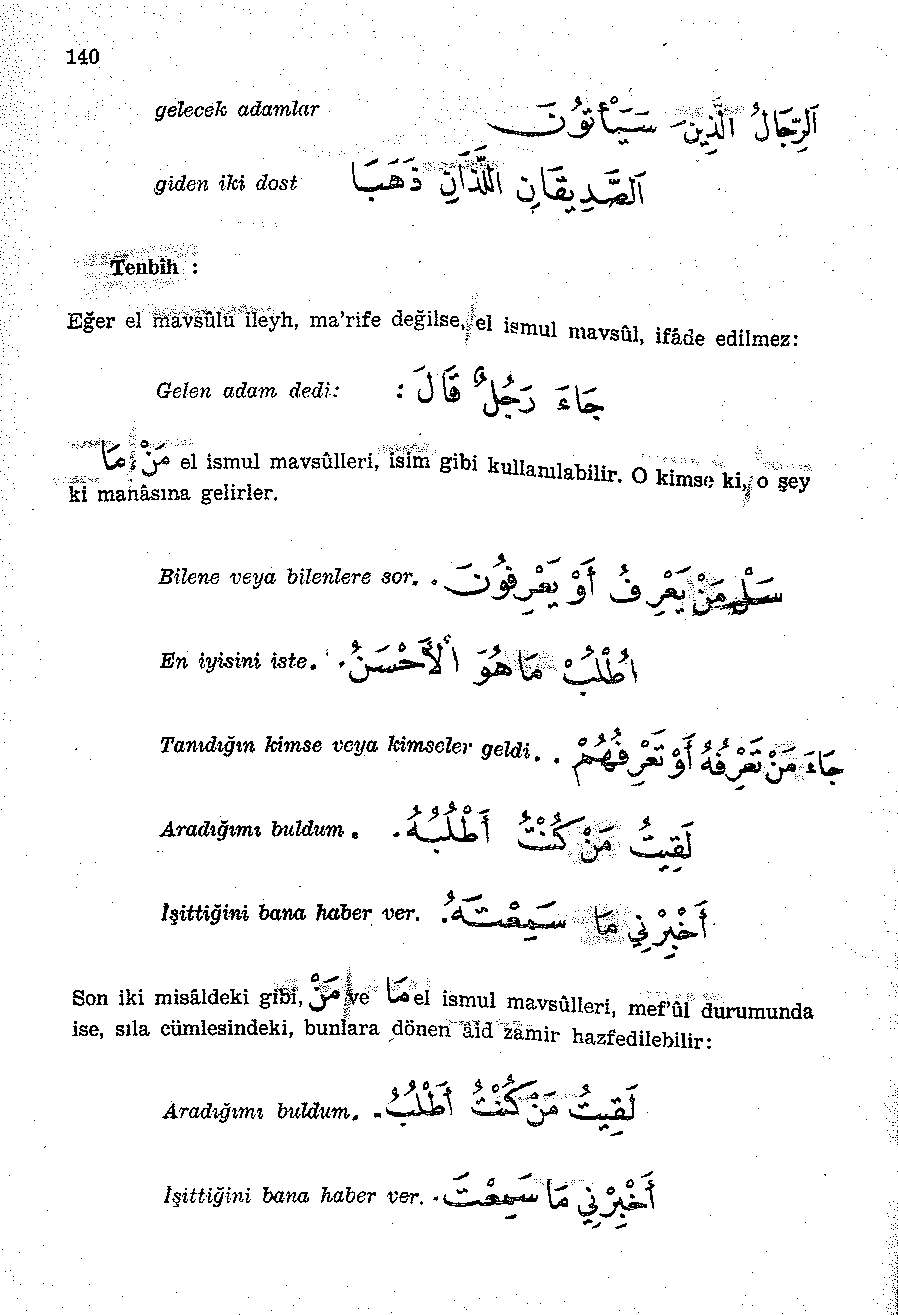 140
gelecek adamlar اَلرِّجَالُ الَّذِينَ سَيَأْتُونَ
giden iki dost اَلصَّدِيقَانِ اللَّذَانِ ذَهَبَا
Tenbîh :
Eğer el mavsûlü ileyh, ma'rife değilse, el ismul mavsûl, ifâde edilmez:
Gelen adam dedi: جَاءَ رَجُلٌ قَالَ :
مَنْ ; مَا el ismul mavsûlleri, isim gibi kullanılabilir. O kimse ki, o şey
ki manâsına gelirler.
Bilene veya bilenlere sor. سَلْ مَنْ يَعْرِفُ أَوْ يَعْرِفُونَ .
En iyisini iste. اُطْلُبْ مَا هُوَ الْأَحْسَنُ .
Tanıdığın kimse veya kimseler geldi. جَاءَ مَنْ تَعْرِفُهُ أَوْ تَعْرِفُهُمْ .
Aradığımı buldum. لَقِيتُ مَنْ كُنْتُ أَطْلُبُهُ .
İşittiğini bana haber ver. أَخْبِرْنِي مَا سَمِعْتَهُ .
Son iki misâldeki gibi, مَنْ ve مَا el ismul mavsûlleri, mef'ûl durumunda
ise, sıla cümlesindeki, bunlara dönen âid zamir hazfedilebilir:
Aradığımı buldum. لَقِيتُ مَنْ كُنْتُ أَطْلُبُ .
İşittiğini bana haber ver. أَخْبِرْنِي مَا سَمِعْتَ .